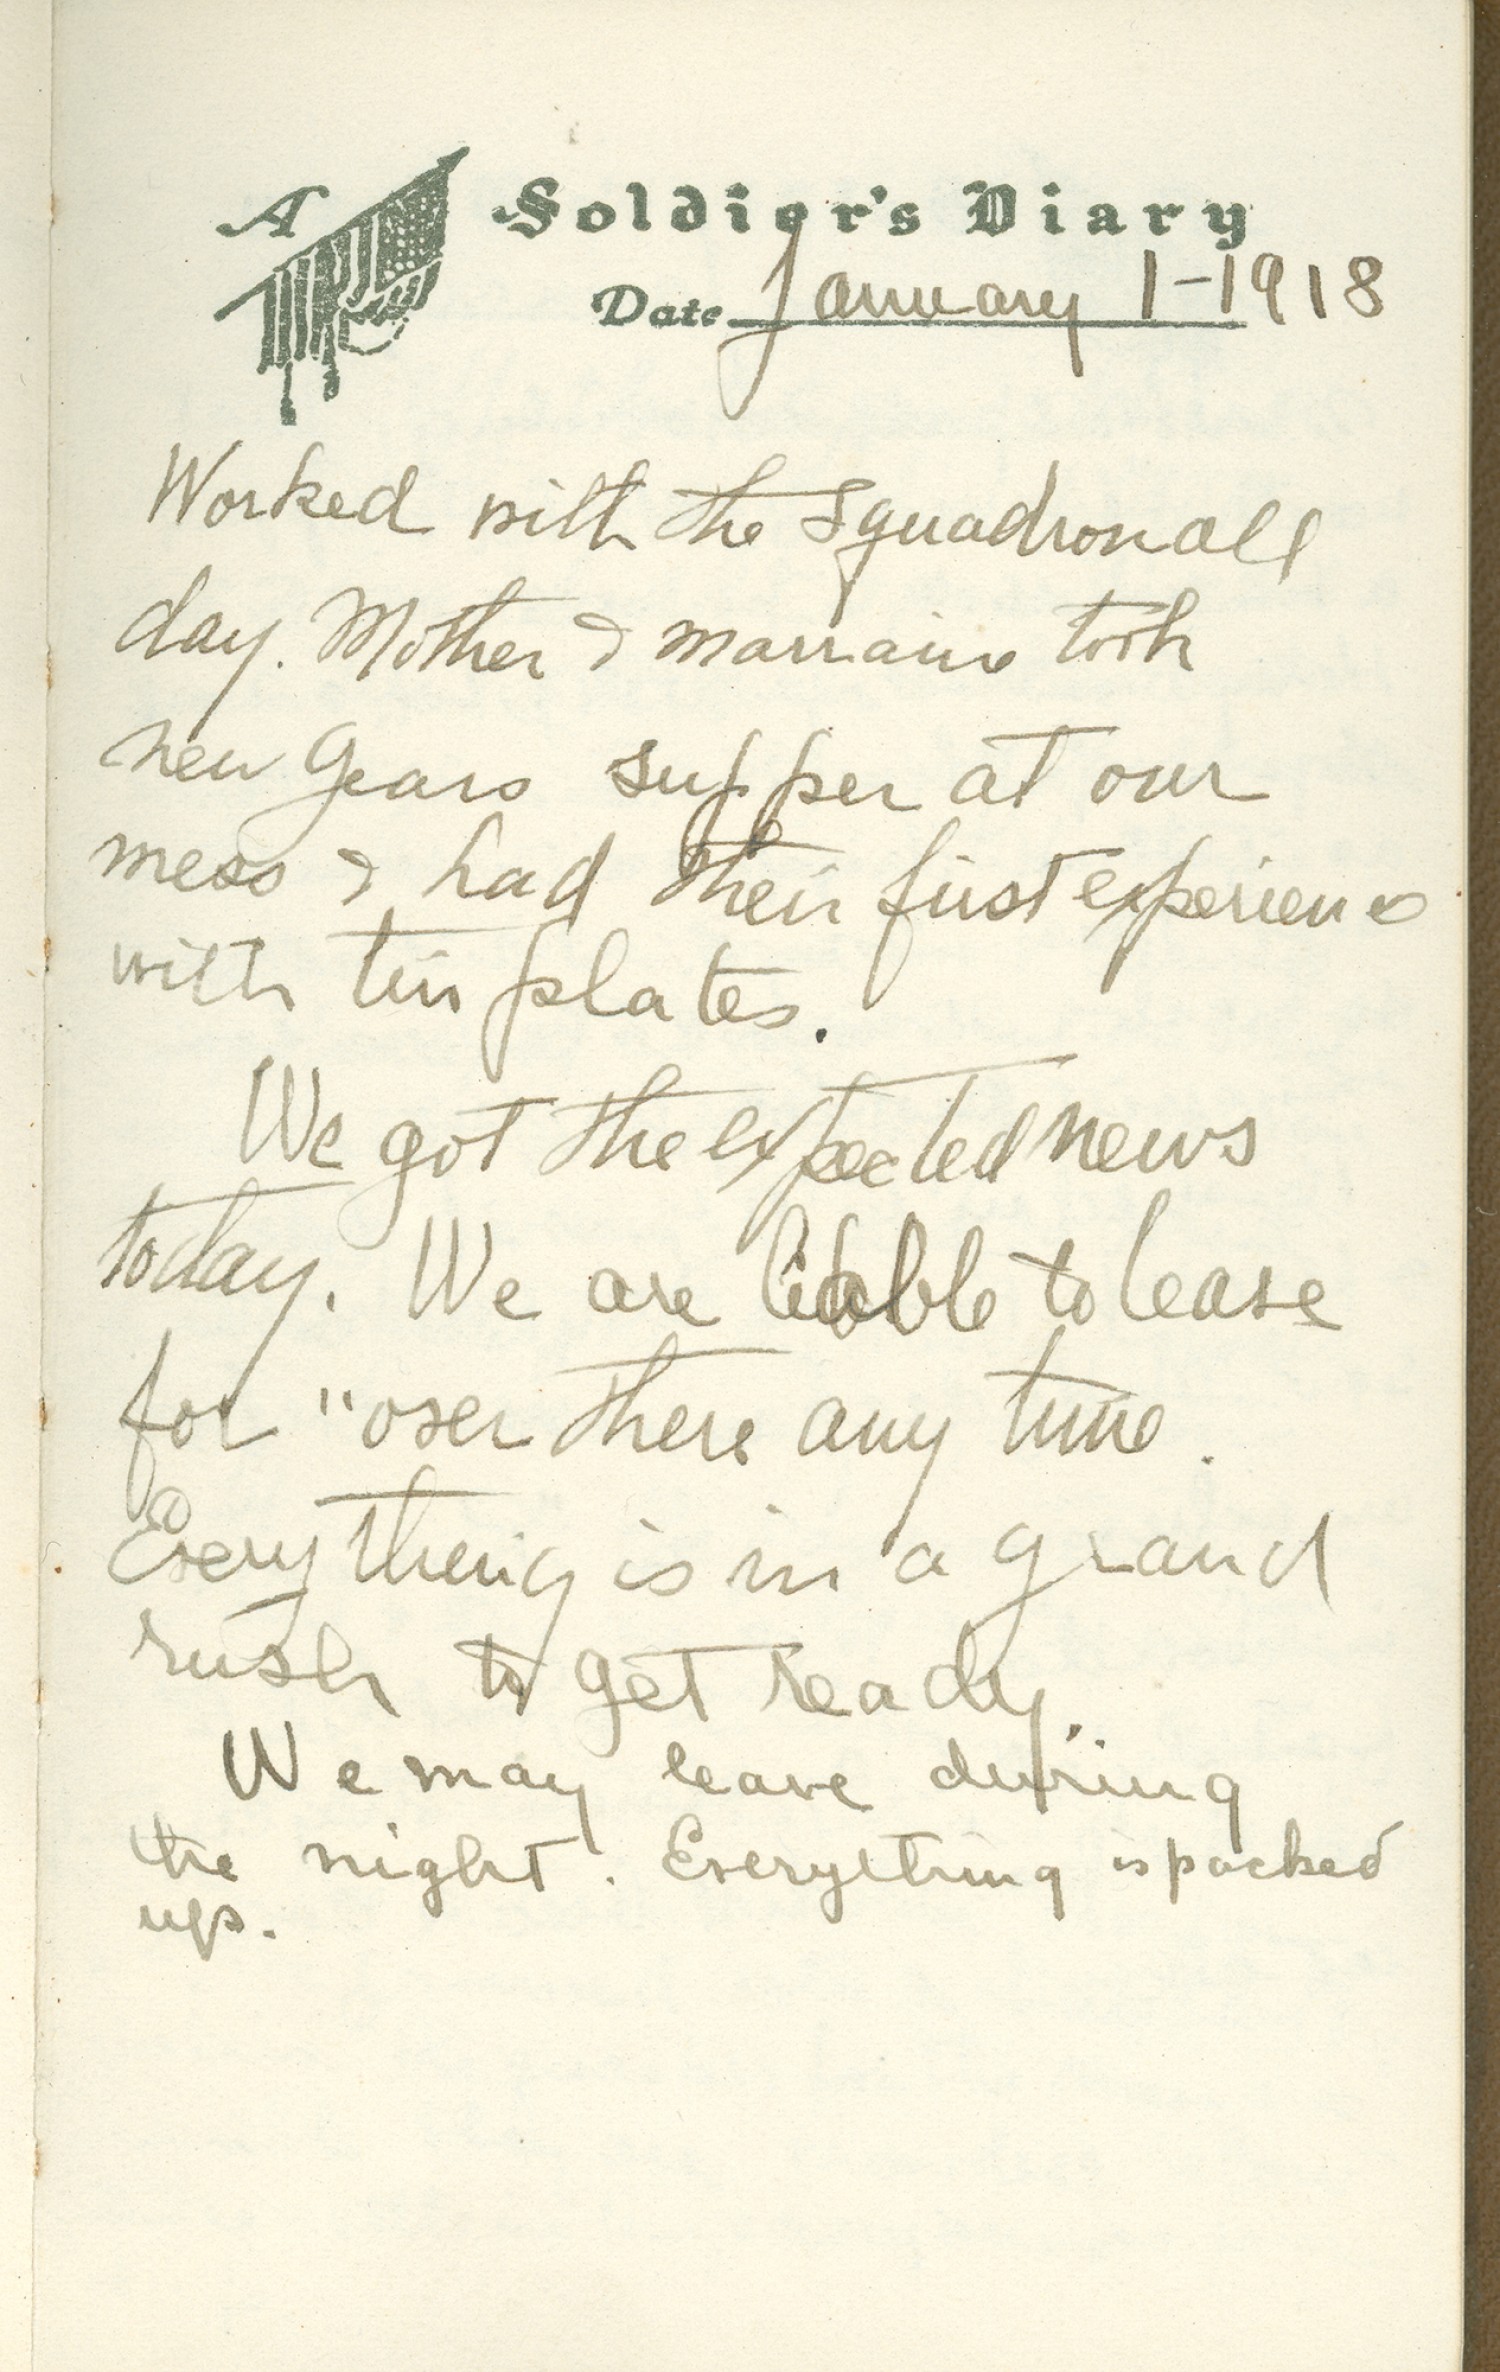 A Soldier's Diary
Date January 1-1918
Worked with the Squadron all
day. Mother & marraine took
new years supper at our
mess & had their first experience
with tin plates.
We got the expected news
today. We are liable to leave
for "over there any time.
Everything is in a grand
rush to get ready.
We may leave during
the night. Everything is packed
up.